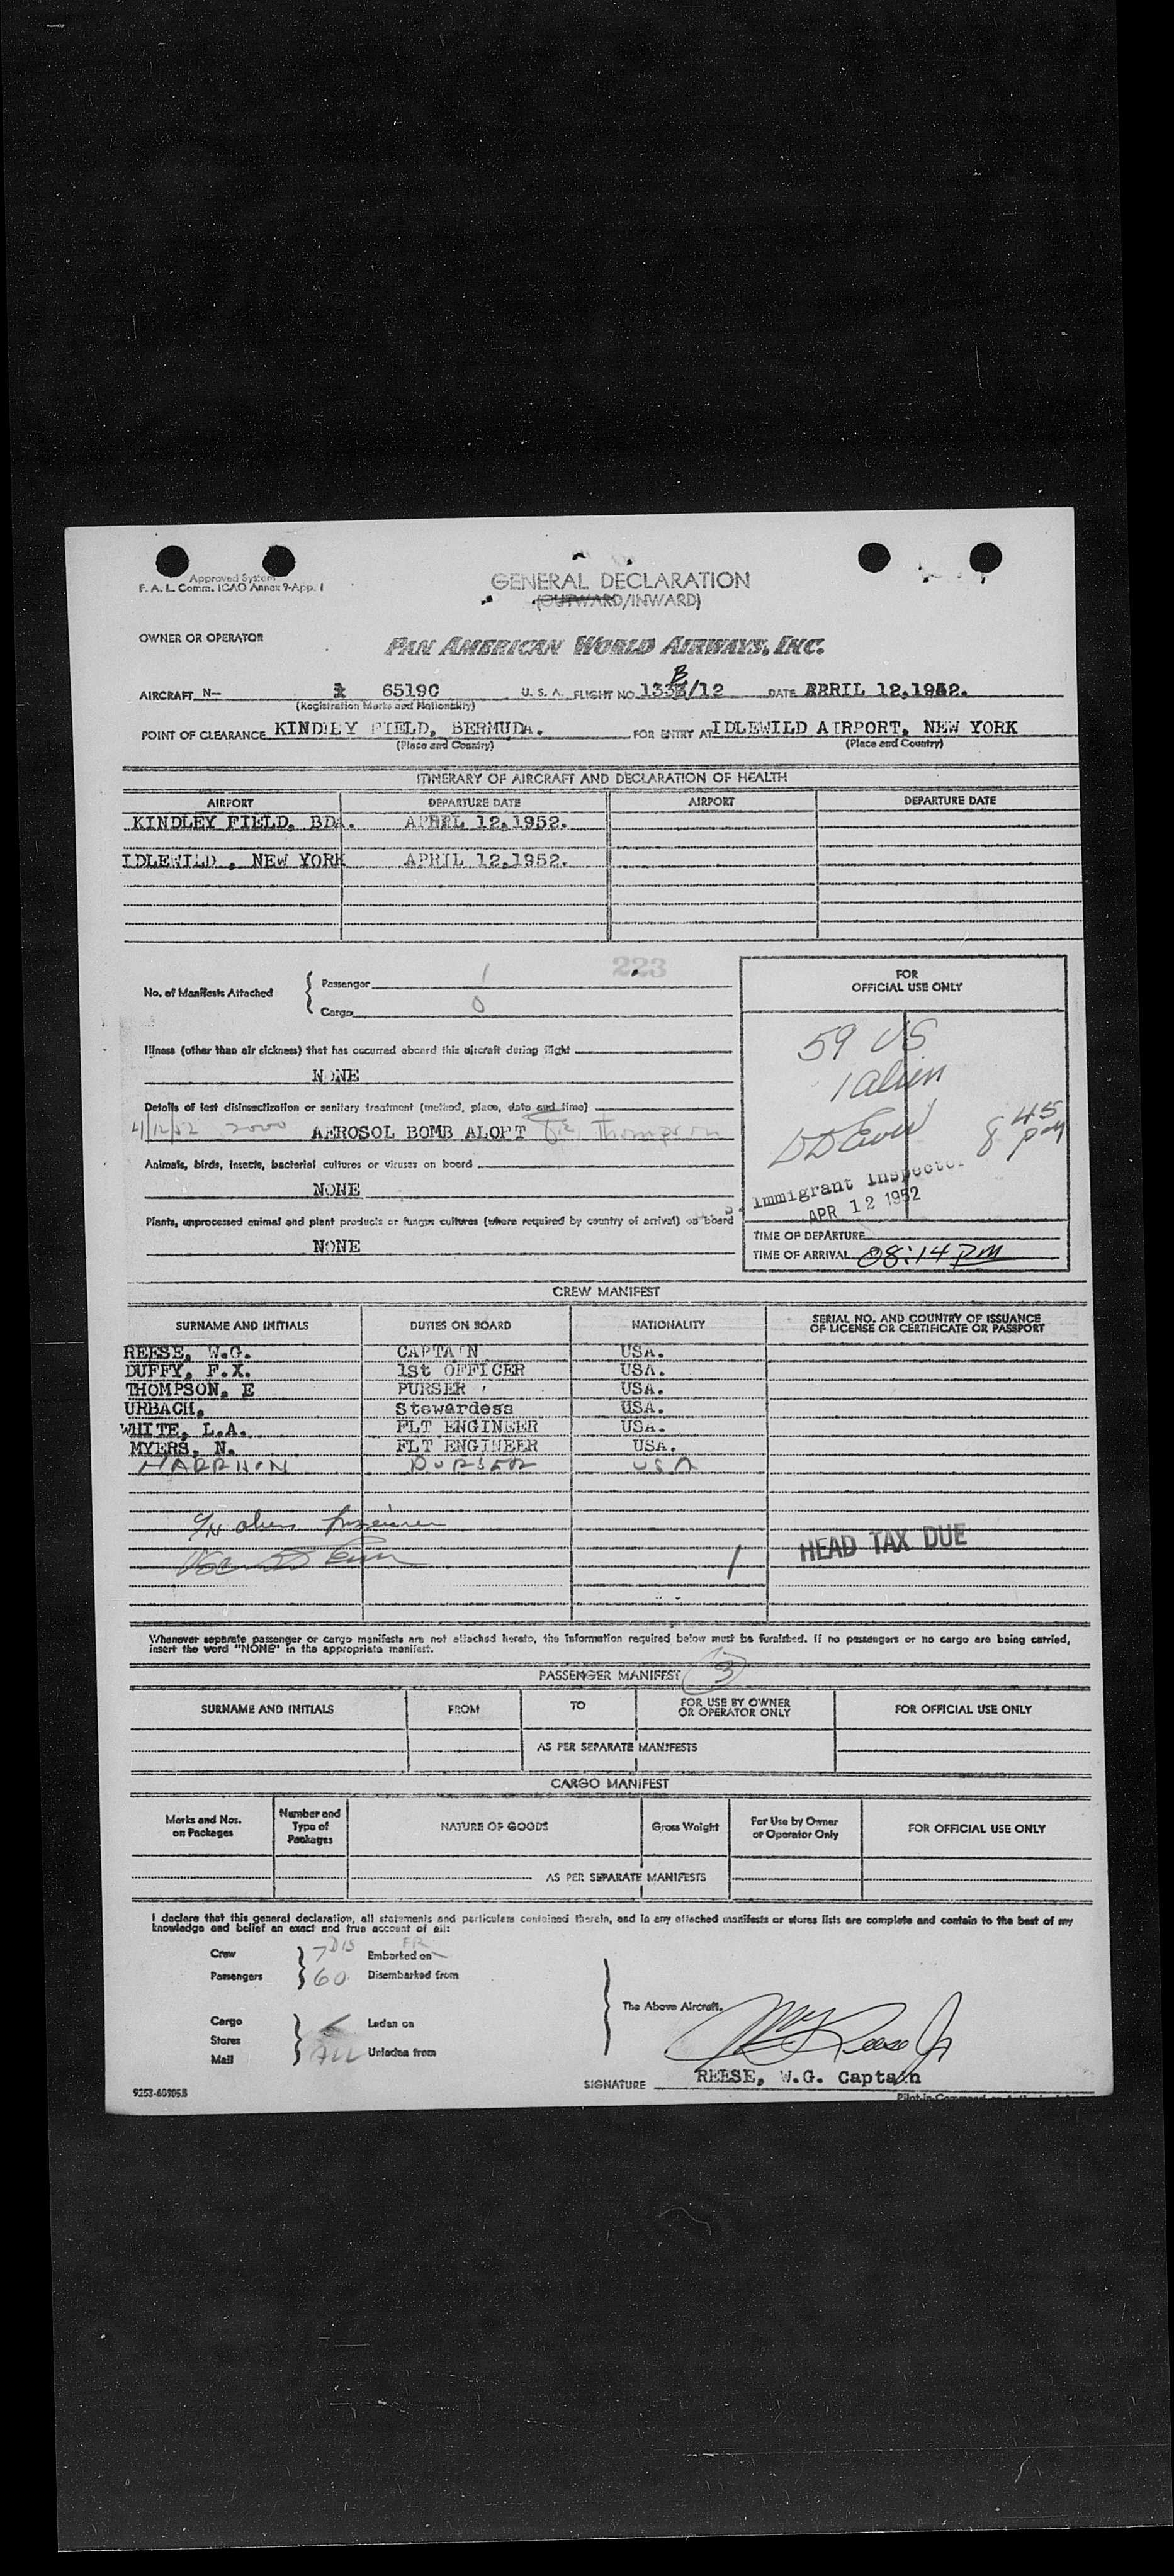 Approved System
F. A. L. Comm. ICAO Annex 9-App. 1
GENERAL DECLARATION
(OUTWARD/INWARD)
OWNER OR OPERATOR
PAN AMERICAN WORLD AIRWAYS, INC.
AIRCRAFT N- 6519C U. S. A. FLIGHT NO. 133B/12 DATE APRIL 12,1952.
(Registration Marks and Nationality)
POINT OF CLEARANCE KINDLEY FIELD, BERMUDA. FOR ENTRY AT IDLEWILD AIRPORT, NEW YORK
(Place and Country) (Place and Country)
ITINERARY OF AIRCRAFT AND DECLARATION OF HEALTH
AIRPORT DEPARTURE DATE AIRPORT DEPARTURE DATE
KINDLEY FIELD, BDA. APRIL 12,1952.
IDLEWILD , NEW YORK APRIL 12,1952.
223
No. of Manifests Attached
Passenger 1
Cargo 0
FOR
OFFICIAL USE ONLY
59 US
1 alien
8 45 pm
Immigrant Inspector
APR 12 1952
TIME OF DEPARTURE
TIME OF ARRIVAL 08:14 PM
Illness (other than air sickness) that has occurred aboard this aircraft during flight
NONE
Details of last disinsectization or sanitary treatment (method, place, date and time)
4/12/52 2000 AEROSOL BOMB ALOFT E. Thompson
Animals, birds, insects, bacterial cultures or viruses on board
NONE
Plants, unprocessed animal and plant products or fungus cultures (where required by country of arrival) on board
NONE
CREW MANIFEST
SURNAME AND INITIALS DUTIES ON BOARD NATIONALITY SERIAL NO. AND COUNTRY OF ISSUANCE
OF LICENSE OR CERTIFICATE OR PASSPORT
REESE, W.G. CAPTAIN USA.
DUFFY, F.X. 1st OFFICER USA.
THOMPSON, E PURSER USA.
URBACH, Stewardess USA.
WHITE, L.A. FLT ENGINEER USA.
MYERS, N. FLT ENGINEER USA.
PURSER USA
1 HEAD TAX DUE
Whenever separate passenger or cargo manifests are not attached hereto, the information required below must be furnished. If no passengers or no cargo are being carried,
insert the word "NONE" in the appropriate manifest.
PASSENGER MANIFEST 3
SURNAME AND INITIALS FROM TO FOR USE BY OWNER
OR OPERATOR ONLY FOR OFFICIAL USE ONLY
AS PER SEPARATE MANIFESTS
CARGO MANIFEST
Marks and Nos.
on Packages Number and
Type of
Packages NATURE OF GOODS Gross Weight For Use by Owner
or Operator Only FOR OFFICIAL USE ONLY
AS PER SEPARATE MANIFESTS
I declare that this general declaration, all statements and particulars contained therein, and in any attached manifests or stores lists are complete and contain to the best of my
knowledge and belief an exact and true account of all:
Crew 7 DIS Embarked on FR
Passengers 60 Disembarked from
The Above Aircraft.
Cargo Laden on
Stores
Mail Unladen from
SIGNATURE REESE, W.G. Captain
9253-60905B